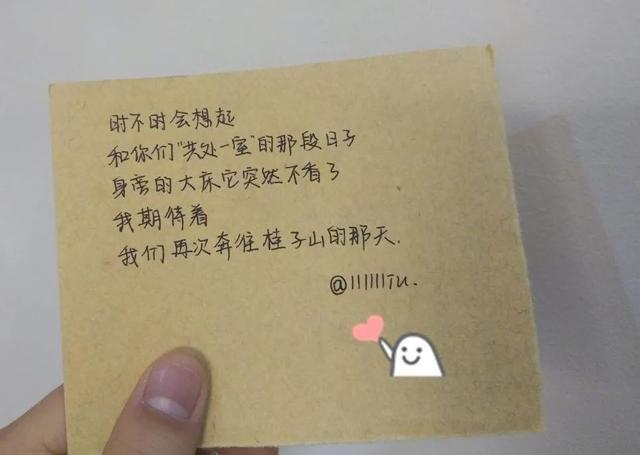 时不时会想起
和你们"共处一室"的那段日子
身旁的大床它突然不香了
我期待着
我们再次奔往桂子山的那天.
@llllllTu.